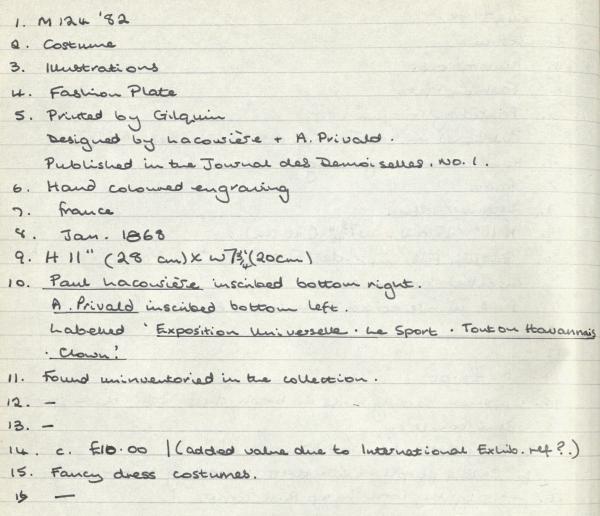 1. M 124 '82
2. Costume
3. Illustrations
4. Fashion Plate
5. Printed by Gilquin
Designed by Lacourière + A. Privald.
Published in the Journal des Demoiselles. No. 1.
6. Hand coloured engraving
7. France
8. Jan. 1868
9. H 11" (28 cm) x W 7¾" (20cm)
10. Paul Lacourière inscribed bottom right.
A. Privald inscribed bottom left.
Labelled 'Exposition Universelle. Le Sport. Touton Havannais
. Clown.'
11. Found uninventoried in the collection.
12. –
13. –
14. c. £10.00 | (added value due to International Exhib. ref?.)
15. Fancy dress costumes.
16 –